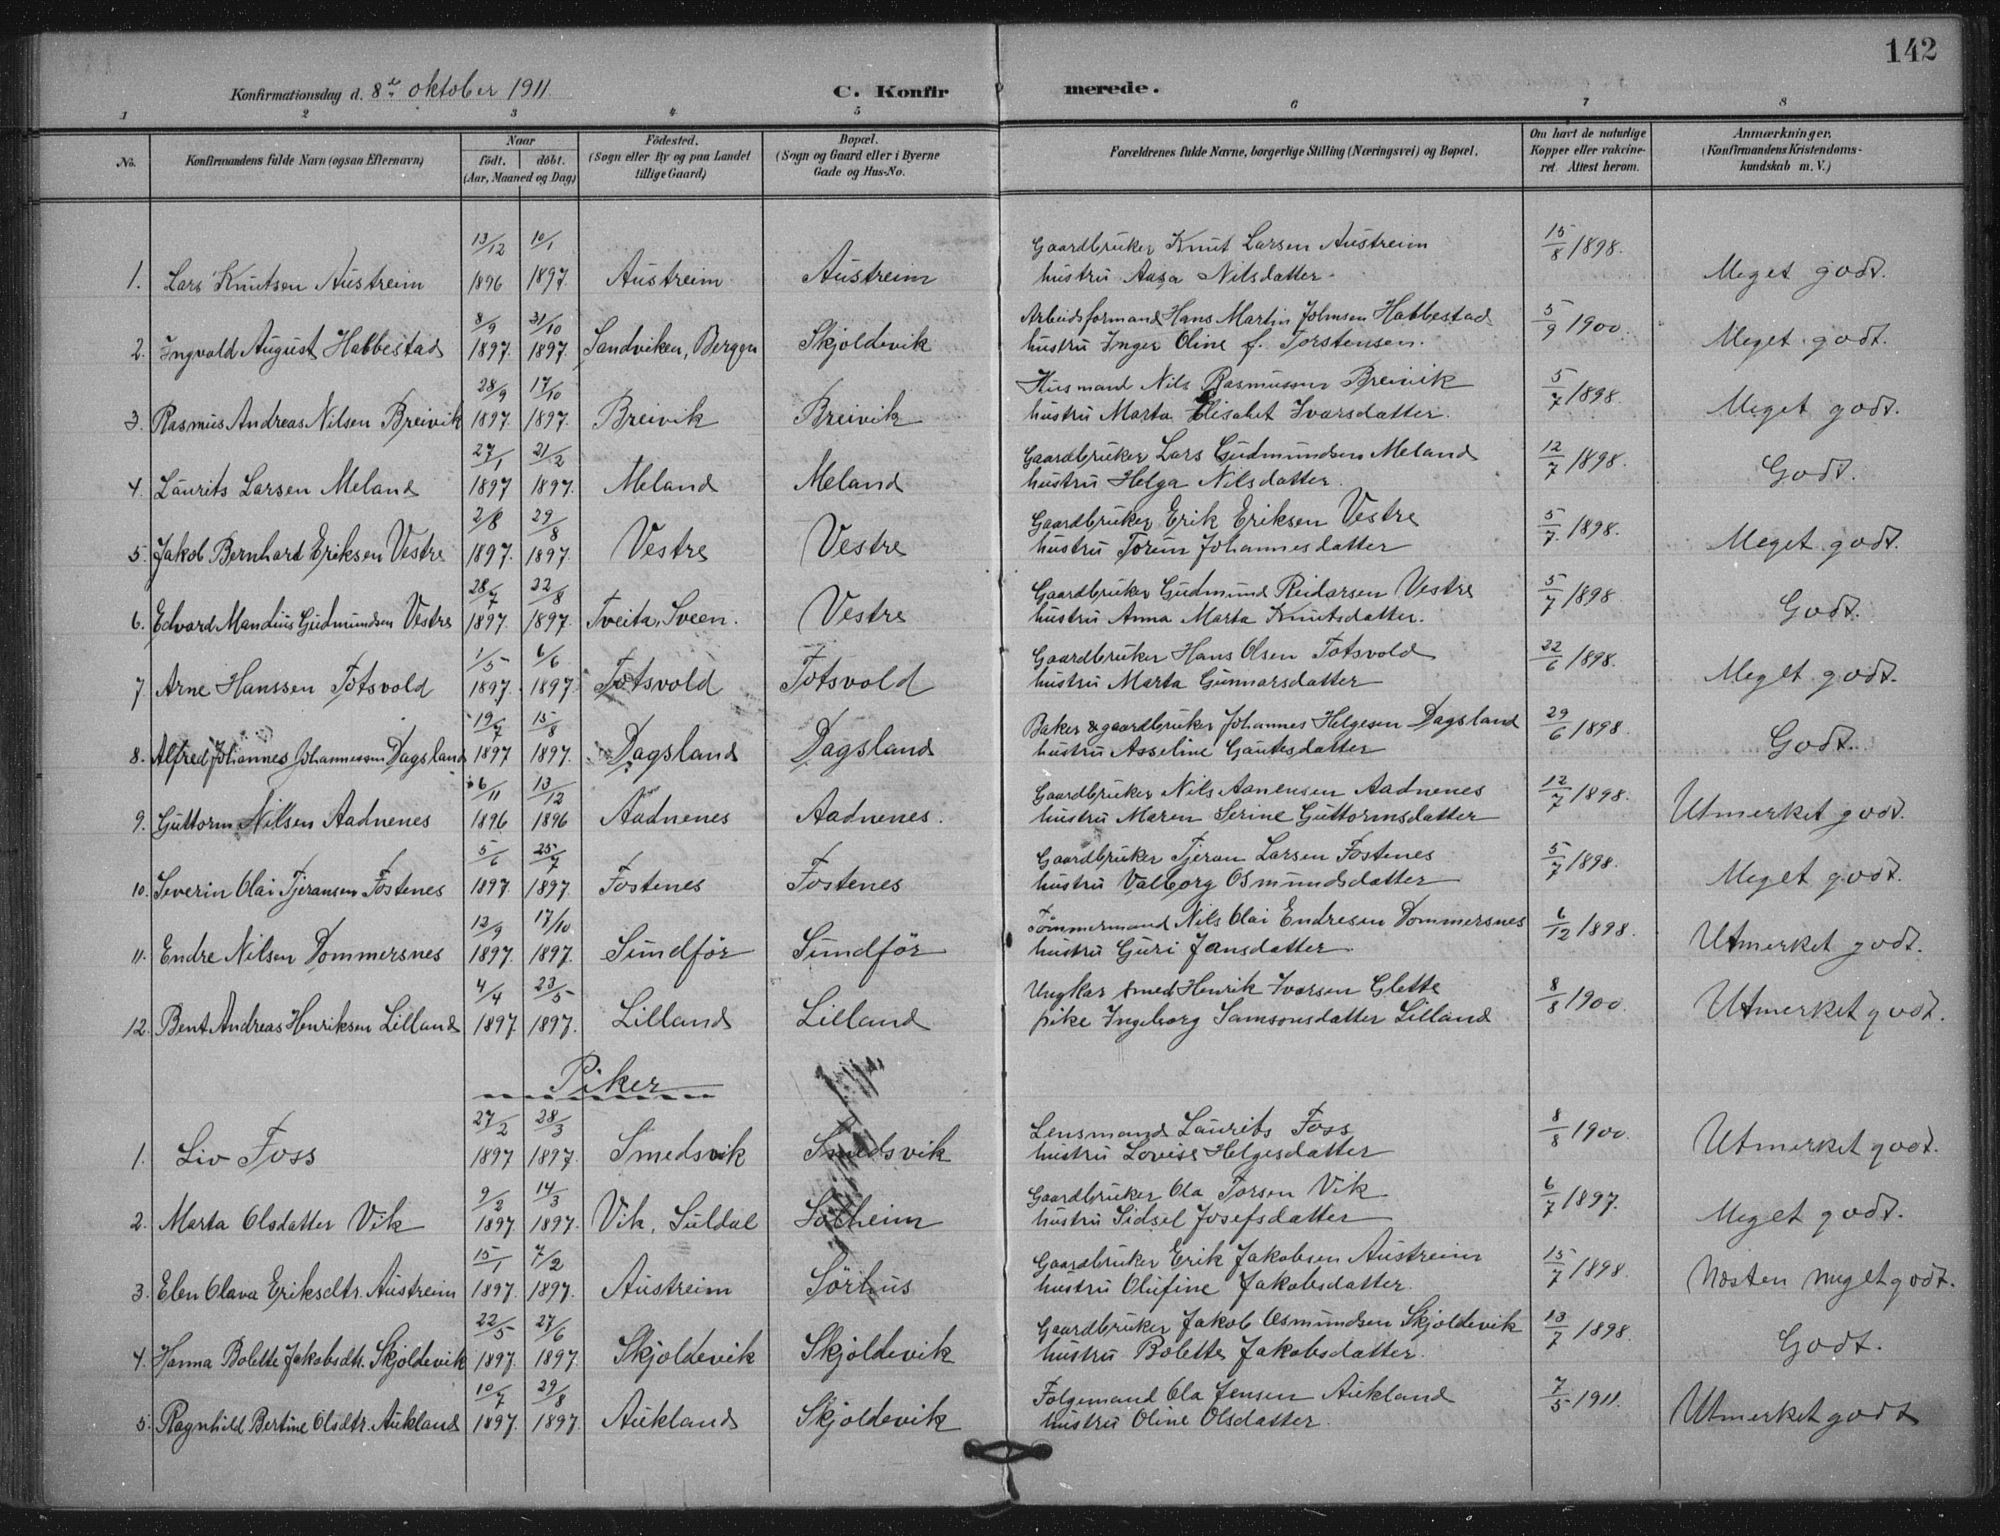 142
Konfirmationsdag d. 8de oktober 1911.
C. Konfirmerede.
1 2 3 4 5 6 7 8
No. Konfirmandens fulde Navn (ogsaa Efternavn) Naar födt. döbt. (Aar, Maaned og Dag) Födested. (Sogn eller By og paa Landet tillige Gaard) Bopæl. (Sogn og Gaard eller i Byerne Gade og Hus-No. Forældrenes fulde Navne, borgerlige Stilling (Næringsvei) og Bopæl. Om havt de naturlige Kopper eller vakcineret. Attest herom. Anmærkninger. (Konfirmandens Kristendomskundskab m. V.)
13/12 10/1 Gaardbruker Knut Larsen Austreim 15/8 1898.
1. Lars Knutsen Austreim 1896 1897 Austreim Austreim hustru Aasa Nilsdatter. Meget godt.
8/9 31/10 Arbeidsformand Hans Martin Johnsen Habbestad 5/9 1900.
2. Ingvald August Habbestad 1897. 1897. Sandviken, Bergen Skjoldevik hustru Inger Oline f. Torstensen. Meget godt.
28/9 17/10 Husmand Nils Rasmussen Breivik 5/7 1898.
3. Rasmus Andreas Nilsen Breivik 1897. 1897. Breivik Breivik hustru Marta Elisabet Ivarsdatter. Meget godt.
27/1 21/2 Gaardbruker Lars Gudmundsen Meland 12/7 1898.
4. Laurits Larsen Meland 1897 1897. Meland Meland hustru Helga Nilsdatter. Godt.
2/8 29/8 Gaardbruker Erik Eriksen Vestre 5/7 1898.
5. Jakob Bernhard Eriksen Vestre 1897. 1897. Vestre Vestre hustru Torun Johannesdatter Meget godt.
28/7 22/8 Gaardbruker Gudmund Reidarsen Vestre 5/7 1898
6. Edvard Mandius Gudmundsen Vestre 1897. 1897. Tveita, Sveen. Vestre hustru Anna Marta Knutsdatter. Godt.
1/5 6/6 Gaardbruker Hans Olsen Totsvold 22/6 1898.
7 Arne Hanssen Totsvold 1897. 1897. Totsvold Totsvold hustru Marta Gunnarsdatter Meget godt.
19/7 15/8 Baker & gaardbruker Johannes Helgesen Dagsland 29/6 1898.
8. Alfred Johannes Johannessen Dagsland 1897 1897. Dagsland Dagsland hustru Asseline Gautesdatter Godt.
6/11 13/12 Gaardbruker Nils Aanensen Aadnenes 12/7 1898.
9. Guttorm Nilsen Aadnenes 1896 1896 Aadnenes Aadnenes. hustru Maren Serine Guttormsdatter Utmerket godt.
5/6 25/7 Gaardbruker Tjeran Larsen Fostenes 5/7 1898.
10. Severin Olai Tjeransen Fostenes 1897. 1897. Fostenes Fostenes hustru Valborg Osmundsdatter Meget godt.
12/9 17/10. Tømmermand Nils Olai Endresen Dommersnes 6/12 1898.
11. Endre Nilsen Dommersnes 1897. 1897. Sundför Sundför hustru Guri Jansdatter Utmerket godt.
4/4 23/5 Ungkar smed Henrik Ivarsen Glette 8/8 1900.
12. Bent Andreas Henriksen Lilland 1897. 1897. Lilland Lilland pike Ingeborg Samsonsdatter Lilland Utmerket godt.
Piker
27/2 28/3 Lensmand Laurits Foss 8/8 1900.
1. Liv Foss 1897 1897. Smedsvik Smedsvik hustru Lovise Helgesdatter Utmerket godt.
9/2 14/3 Gaardbruker Ola Torsen Vik 6/7 1897.
2. Marta Olsdatter Vik 1897. 1897. Vik, Suldal Solheim hustru Sidsel Josefsdatter Meget godt.
15/1 7/2 Gaardbruker Erik Jakobsen Austreim 15/7 1898.
3. Elen Olava Eriksdtr. Austreim 1897. 1897. Austreim Sörhus hustru Olufine Jakobsdatter. Næsten meget godt.
22/5 27/6 Gaardbruker Jakob Osmundsen Skjoldevik 13/7 1898.
4. Hanna Bolette Jakobsdtr. Skjoldevik 1897. 1897. Skjoldevik Skjoldevik hustru Bolette Jakobsdatter. Godt.
10/7 29/8 Følgemand Ola Jensen Aukland 7/5 1911.
5. Ragnhild Bertine Olsdtr. Aukland 1897. 1897. Aukland Skjoldevik hustru Oline Olsdatter. Utmerket godt